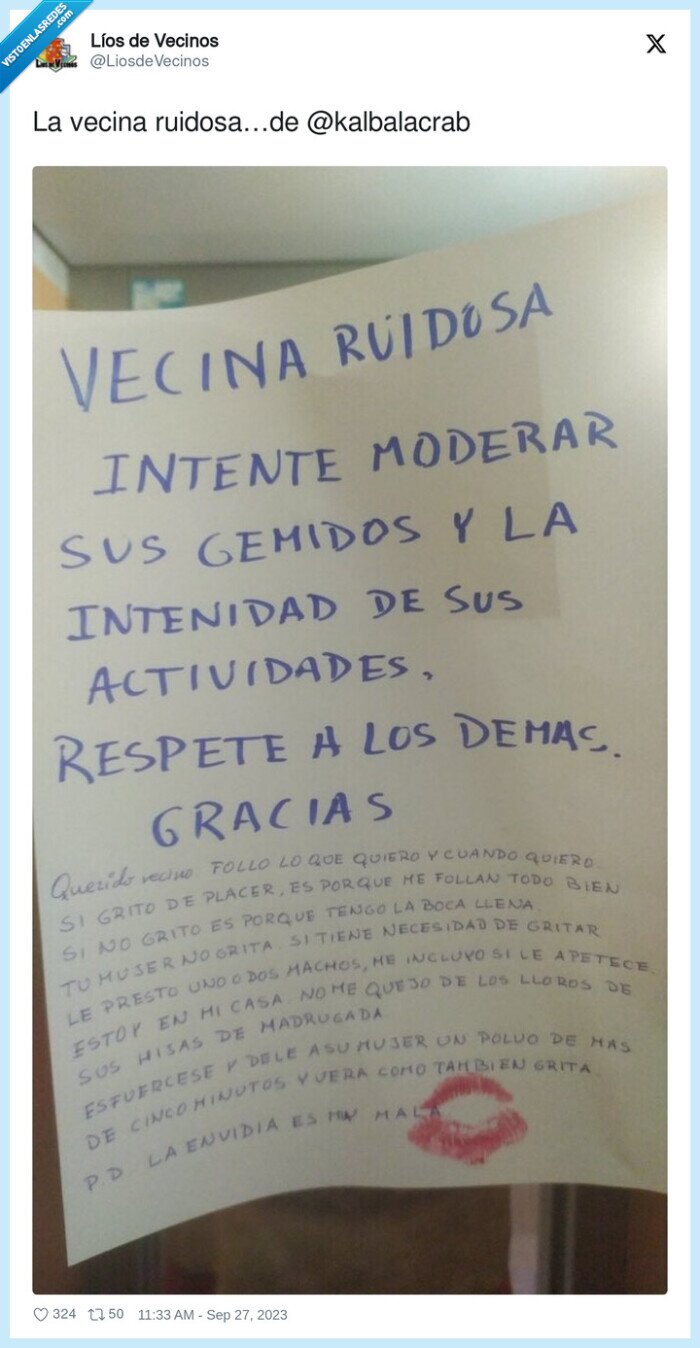 VISTOENLASREDES
.com
Líos de Vecinos
@LiosdeVecinos
La vecina ruidosa…de @kalbalacrab
VECINA RUIDOSA
INTENTE MODERAR
SUS GEMIDOS Y LA
INTENIDAD DE SUS
ACTIVIDADES.
RESPETE A LOS DEMAS.
GRACIAS
Querido vecino FOLLO LO QUE QUIERO Y CUANDO QUIERO
SI GRITO DE PLACER, ES PORQUE ME FOLLAN TODO BIEN
SI NO GRITO ES PORQUE TENGO LA BOCA LLENA.
TU MUJER NO GRITA. SI TIENE NECESIDAD DE GRITAR
LE PRESTO UNO O DOS MACHOS, ME INCLUYO SI LE APETECE.
ESTOY EN MI CASA. NO ME QUEJO DE LOS LLOROS DE
SUS HIJAS DE MADRUGADA
ESFUERCESE Y DELE A SU MUJER UN POLVO DE MAS
DE CINCO MINUTOS Y VERA COMO TAMBIEN GRITA
P.D LA ENVIDIA ES MUY MALA
324 50 11:33 AM - Sep 27, 2023